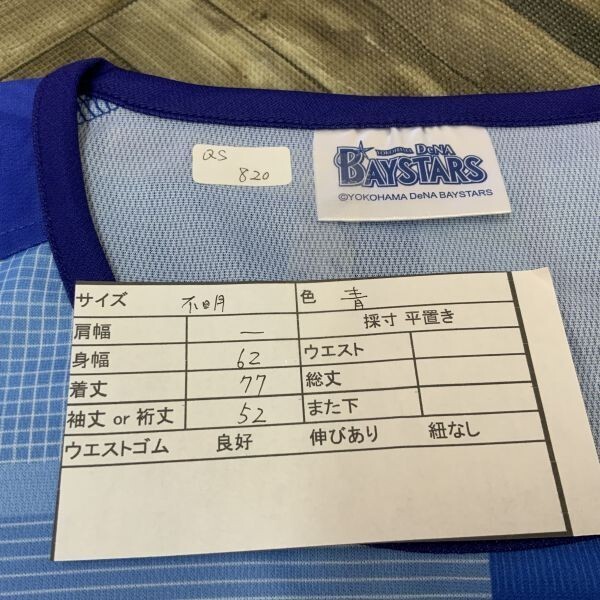 QS
820
YOKOHAMA DeNA
BAYSTARS
©YOKOHAMA DeNA BAYSTARS
サイズ 不明 色 青
肩幅 ー 採寸 平置き
身幅 62 ウエスト
着丈 77 総丈
袖丈 or 裄丈 52 また下
ウエストゴム 良好 伸びあり 紐なし